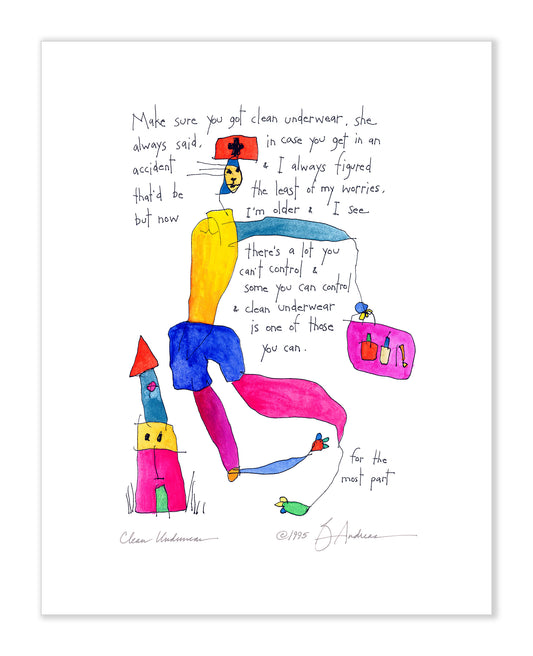 Make sure you got clean underwear, she
always said, in case you get in an
accident & I always figured
that'd be the least of my worries,
but now I'm older & I see
there's a lot you
can't control &
some you can control
& clean underwear
is one of those
you can.
for the
most part
Clean Underwear
©1995 B Andreas